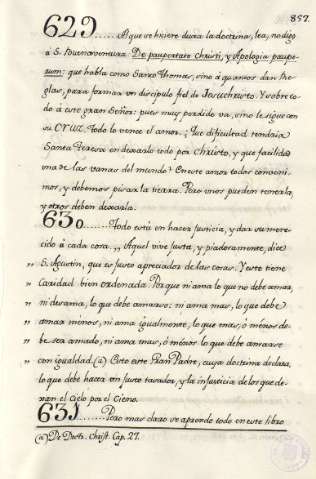 857.
629......A que se hiciere dura la doctrina, lea, no digo
á S. Buenaventura: De paupertate Christi, y Apologia paupe-
rum: que habla como Santo Thomas, sino á quantos dan Re-
glas, para formar un discipulo fiel de Jesuchristo. Y sobre to-
do á este gran Señor: pues muy perdido va, sino le sigue con
su Cruz. Todo lo vence el amor. ¿Que dificultad tendria
Santa Teresa en dexarlo todo por Christo, y que facilidad
una de las vanas del mundo? En este amor todos conveni-
mos, y debemos pisar la tierra. Pero unos pueden tenerla,
y otros deben dexarla.
630......Todo está en hacer justicia, y dar su mere-
cido á cada cosa. „ Aquel vive justa, y piadosamente, dice
„ S. Agustin, que es justo apreciador de las cosas. Y este tiene
„ Caridad bien ordenada. Porque ni ama lo que no debe amar,
„ ni desama, lo que debe amarse: ni ama mas, lo que debe
„ amar ménos, ni ama igualmente, lo que mas, ó ménos de-
„ be ser amado, ni ama mas, ó ménos lo que debe amarse
„ con igualdad. (a) Esto este Gran Padre, cuya doctrina declara,
lo que debe hacer un justo tasador, y la injusticia de los que de-
xan el Cielo por el Cieno.
631......Pero mas claro se aprende todo en este libro
(a) De Doctr. Christ. Cap. 27.